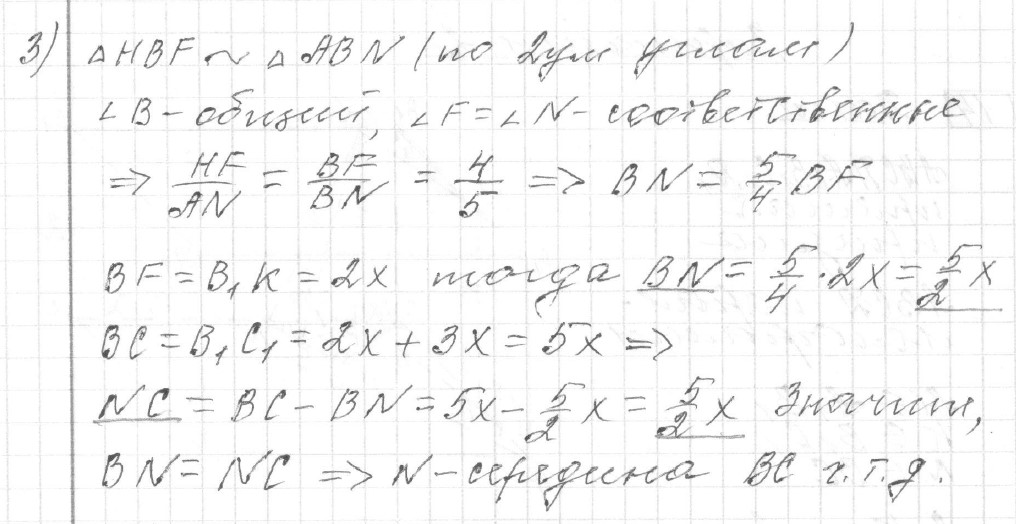 3) △HBF ~ △ABN (по 2ум углам)
∠B - общий, ∠F = ∠N - соответственные
⇒ HF/AN = BF/BN = 4/5 ⇒ BN = 5/4 BF
BF = B₁K = 2x тогда BN = 5/4 · 2x = 5/2 x
BC = B₁C₁ = 2x + 3x = 5x ⇒
NC = BC - BN = 5x - 5/2 x = 5/2 x Значит,
BN = NC ⇒ N - середина BC ч.т.д.